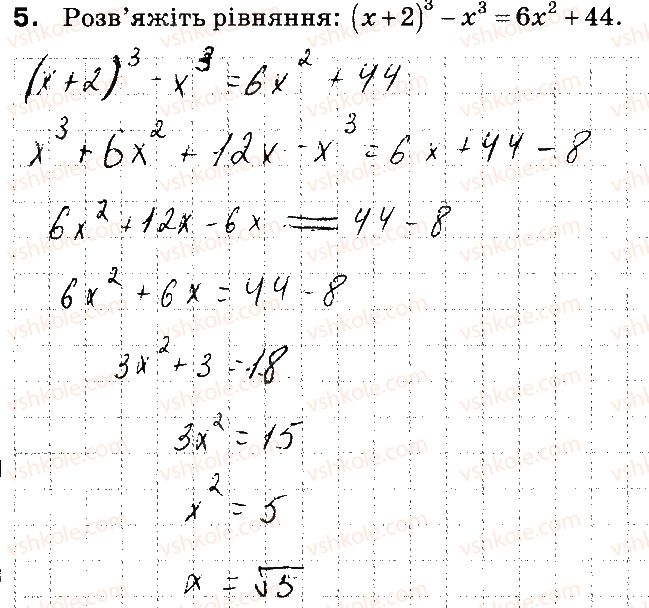 5. Розв’яжіть рівняння: (x+2)³ − x³ = 6x² + 44.
(x+2)³ − x³ = 6x² + 44
x³ + 6x² + 12x − x³ = 6x + 44 − 8
6x² + 12x − 6x = 44 − 8
6x² + 6x = 44 − 8
3x² + 3 = 18
3x² = 15
x² = 5
x = √5